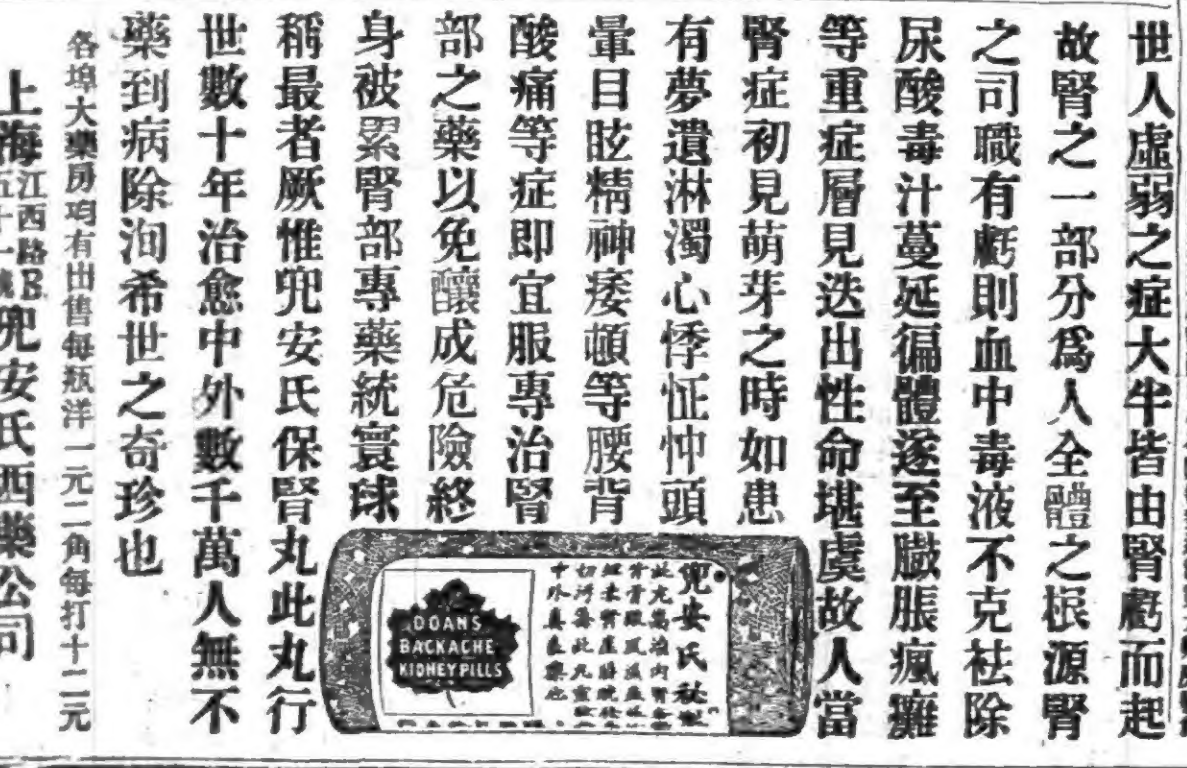 世人虛弱之症大半皆由腎虧而起
故腎之一部分爲人全體之根源腎
之司職有虧則血中毒液不克袪除
尿酸毒汁蔓延徧體遂至臌脹瘋癱
等重症層見迭出性命堪虞故人當
腎症初見萌芽之時如患
有夢遺淋濁心悸怔忡頭
暈目眩精神痿頓等腰背
酸痛等症即宜服專治腎
部之藥以免釀成危險終
身被累腎部專藥統寰球
稱最者厥惟兜安氏保腎丸此丸行
世數十年治愈中外數千萬人無不
藥到病除洵希世之奇珍也
各埠大藥房均有出售每瓶洋一元二角每打十二元
上海江西路B
五十一號
兜安氏西藥公司
兜安氏
DOANS
BACKACHE
KIDNEY PILLS